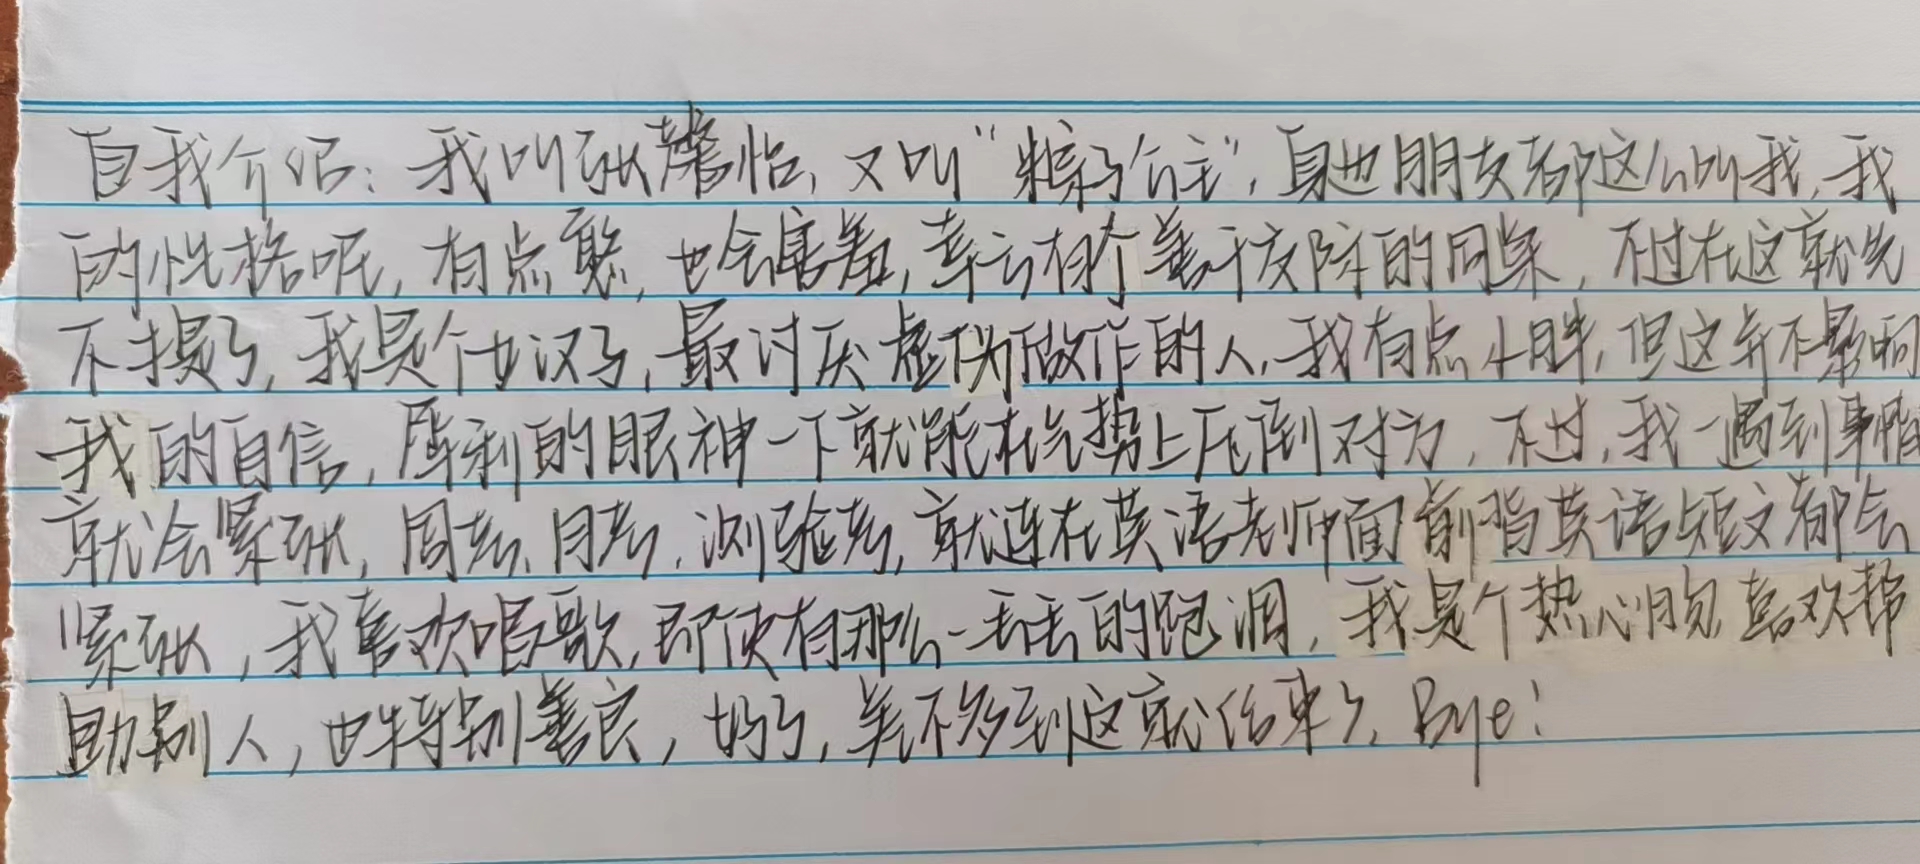 自我介绍：我叫张馨怡，又叫“粽子公主”，身边朋友都这么叫我，我
的性格呢，有点憨，也会害羞，幸云有个善于交际的同桌，不过在这就先
不提了，我是个女汉子，最讨厌虚伪做作的人，我有点小胖，但这并不影响
我的自信，犀利的眼神一下就能在气势上压倒对方，不过，我一遇到事情
就会紧张，周考、月考，测验考，就连在英语老师面前背英语短文都会
紧张，我喜欢唱歌，即使有那么一丢丢的跑调，我是个热心肠，喜欢帮
助别人，也特别善良，好了，差不多到这就结束了，Bye！